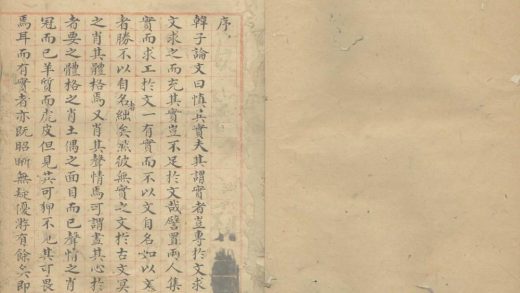 序
韓子論文曰慎其實夫其謂實者豈專於文求
文求之而充其實豈不足於文哉譬置兩人集
實而求工於文一有實而不以文自名以文
者勝不以自名者絀矣然彼無實之文於古文冥
之肖其體格焉又肖其聲情焉可謂盡其心於
者要之體格之肖土偶之面目而已聲情之肖
冠而已羊質而虎皮但見其可狎不見其可畏
焉耳而有實者亦既昭晰無疑優游有餘矣即